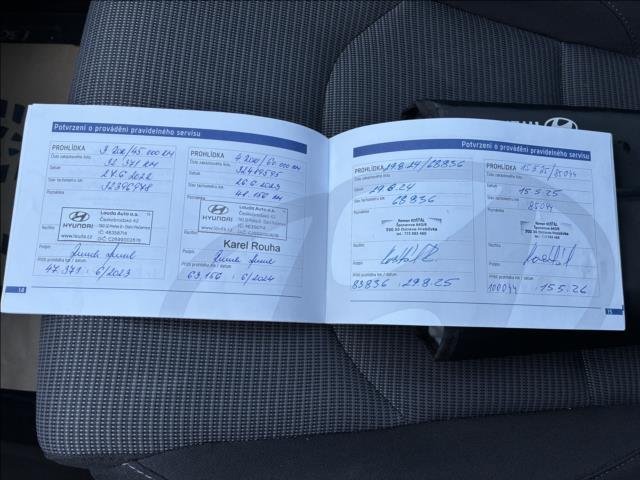 Potvrzení o provádění pravidelného servisu
PROHLÍDKA 3 ROK/45 000 KM
Číslo zakázkového listu 32 371 KM
Datum 27.6 2022
Stav tachometru km 32396948
Poznámka
Louda Auto a.s.
HYUNDAI
www.louda.cz
Razítko
Příští prohlídka km / datum
47.371 : 6/2023
14
PROHLÍDKA 4 ROK/60 000 KM
Číslo zakázkového listu 32419595
Datum 26.6 2023
Stav tachometru km 48.156 KM
Poznámka
Louda Auto a.s.
HYUNDAI
www.louda.cz
Karel Rouha
Razítko
Příští prohlídka km / datum
63.156 : 6/2024
Potvrzení o provádění pravidelného servisu
PROHLÍDKA 29.8.24/68836
Číslo zakázkového listu
Datum 29.8.24
Stav tachometru km 68836
Poznámka
Roman KOSTÁL
Razítko
Příští prohlídka km / datum
83836 : 29.8.25
PROHLÍDKA 15.5.25/85044
Číslo zakázkového listu
Datum 15.5.25
Stav tachometru km 85044
Poznámka
Roman KOSTÁL
Razítko
Příští prohlídka km / datum
100044 : 15.5.26
15